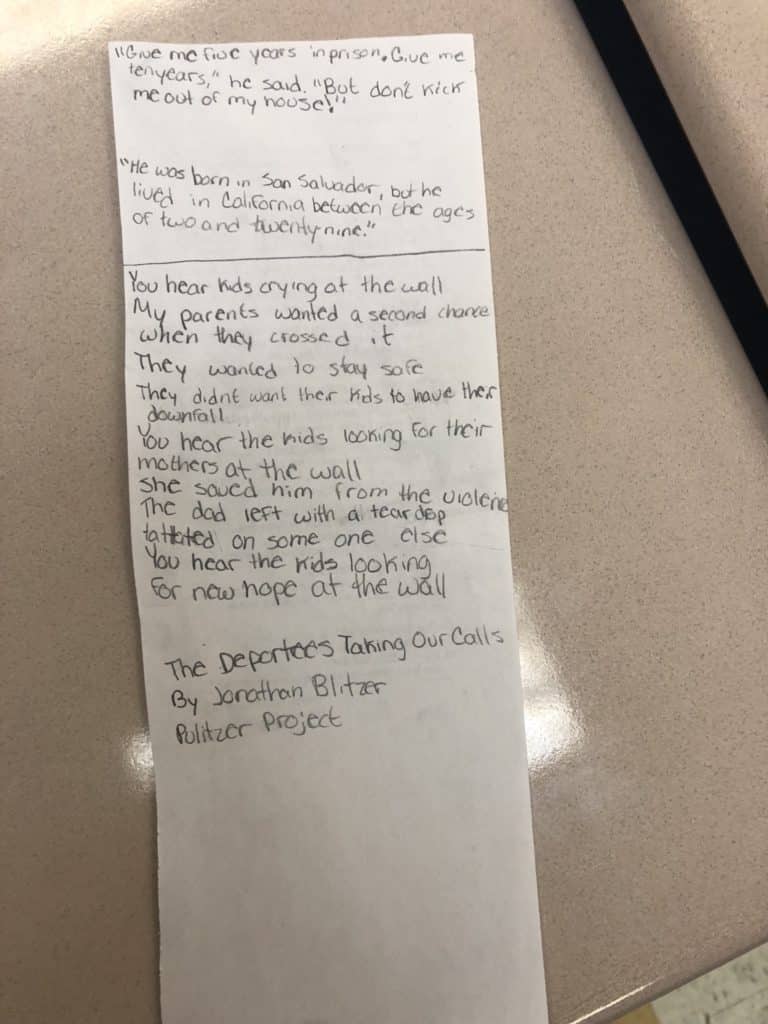 "Give me five years in prison. Give me
ten years," he said. "But don't kick
me out of my house!"
"He was born in San Salvador, but he
lived in California between the ages
of two and twenty-nine."
You hear kids crying at the wall
My parents wanted a second chance
when they crossed it
They wanted to stay safe
They didnt want their kids to have their
downfall
You hear the kids looking for their
mothers at the wall
She saved him from the violene
The dad left with a tear dop
tattoted on some one else
You hear the kids looking
For new hope at the wall
The Deportees Taking Our Calls
By Jonathan Blitzer
Pulitzer Project